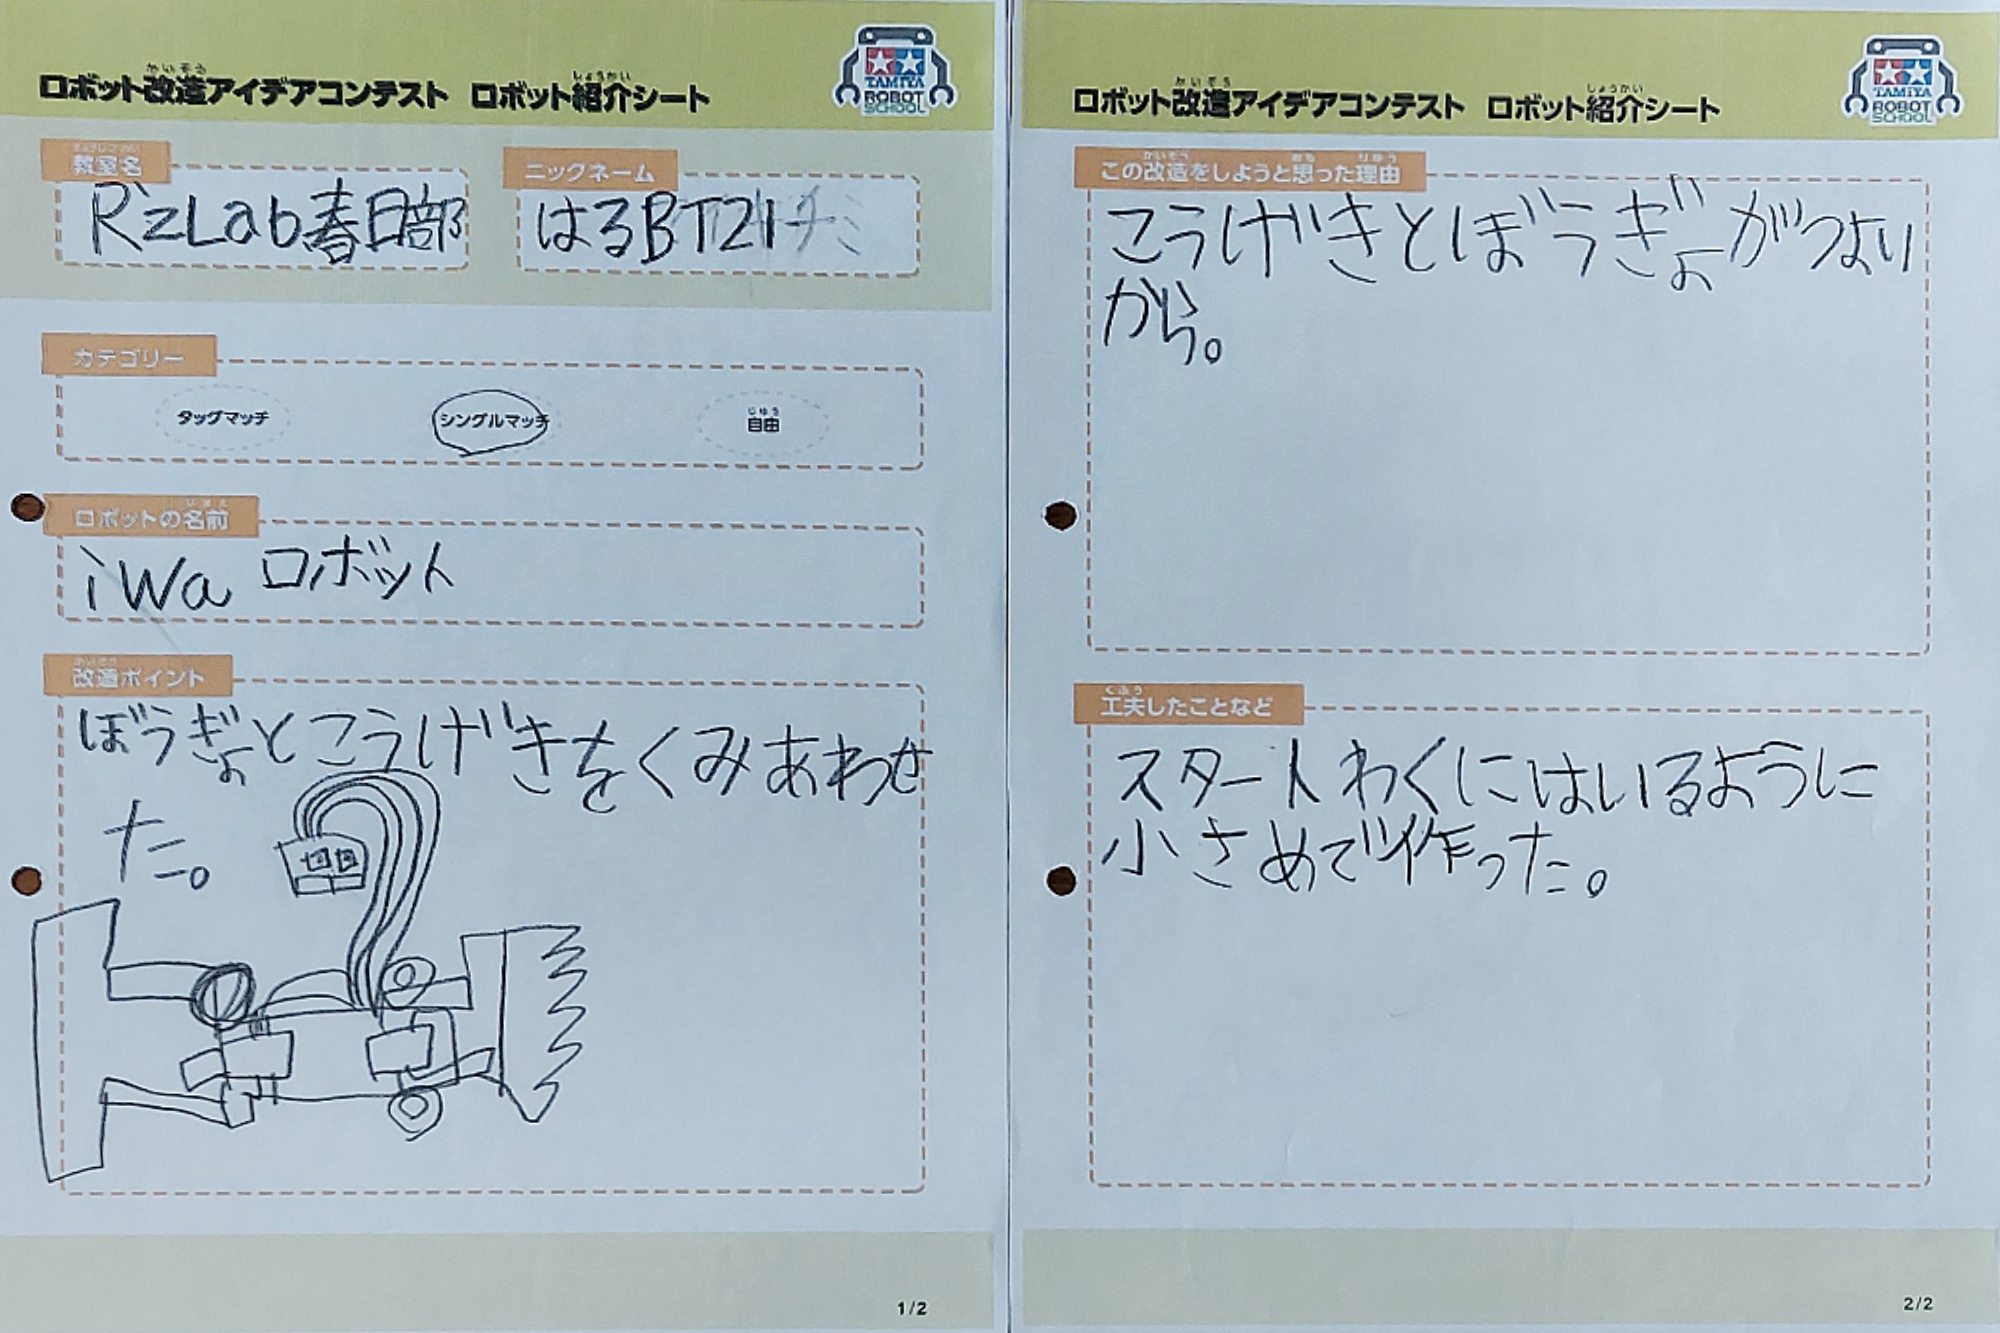 かいぞう しょうかい
ロボット改造アイデアコンテスト ロボット紹介シート
TAMIYA
ROBOT
SCHOOL
教室名
R'zLab春日部
ニックネーム
はるBT21
カテゴリー
タッグマッチ
シングルマッチ
じゆう
自由
なまえ
ロボットの名前
iwaロボット
かいぞう
改造ポイント
ぼうぎょとこうげきをくみあわせ
た。
1/2
かいぞう しょうかい
ロボット改造アイデアコンテスト ロボット紹介シート
TAMIYA
ROBOT
SCHOOL
かいぞう おも りゆう
この改造をしようと思った理由
こうげきとぼうぎょがつよい
から。
くふう
工夫したことなど
スタートわくにはいるように
小さめで作った。
2/2